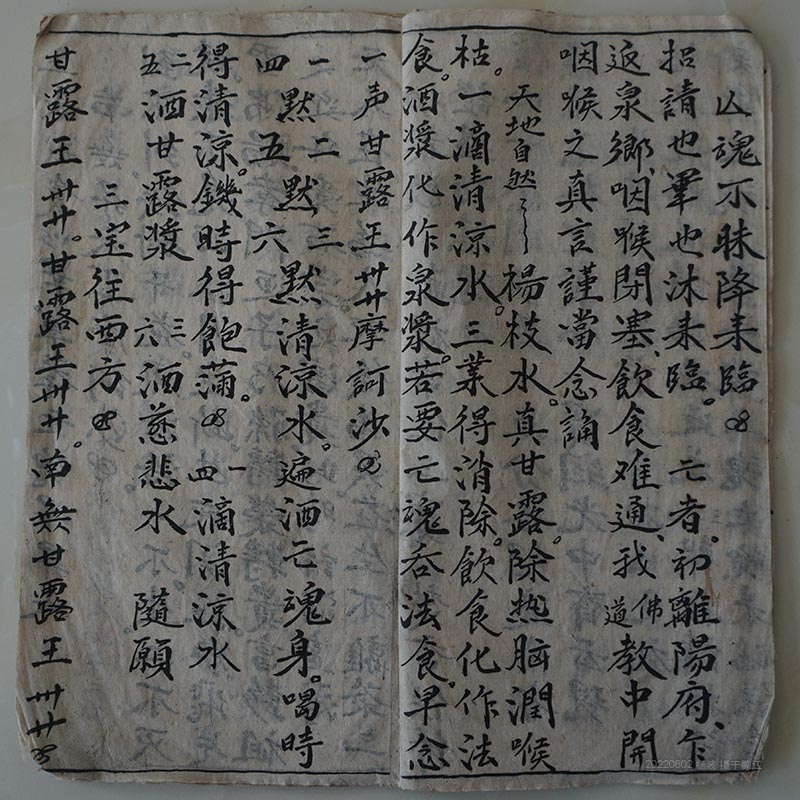 亡魂不昧降来臨
招請也畢也沐来臨。亡者。初離陽府、乍
返泉鄉、咽喉閉塞、飲食难通、我佛道教中開
咽喉之真言謹當念誦
天地自然
楊枝水。真甘露。除热脑潤喉
枯。一滴清涼水。三業得消除。飲食化作法
食。酒漿化作泉漿。若要亡魂吞法食。早念
一声甘露王卅廾摩訶沙
一默二默三默清涼水。遍洒亡魂身。喝時
四五六
得清涼。饑時得飽蒲。一滴清涼水
四
二洒甘露漿三洒慈悲水隨願
五六
三宝往西方
甘露王卅廾。甘露王卅廾。南無甘露王卅廾
20220802